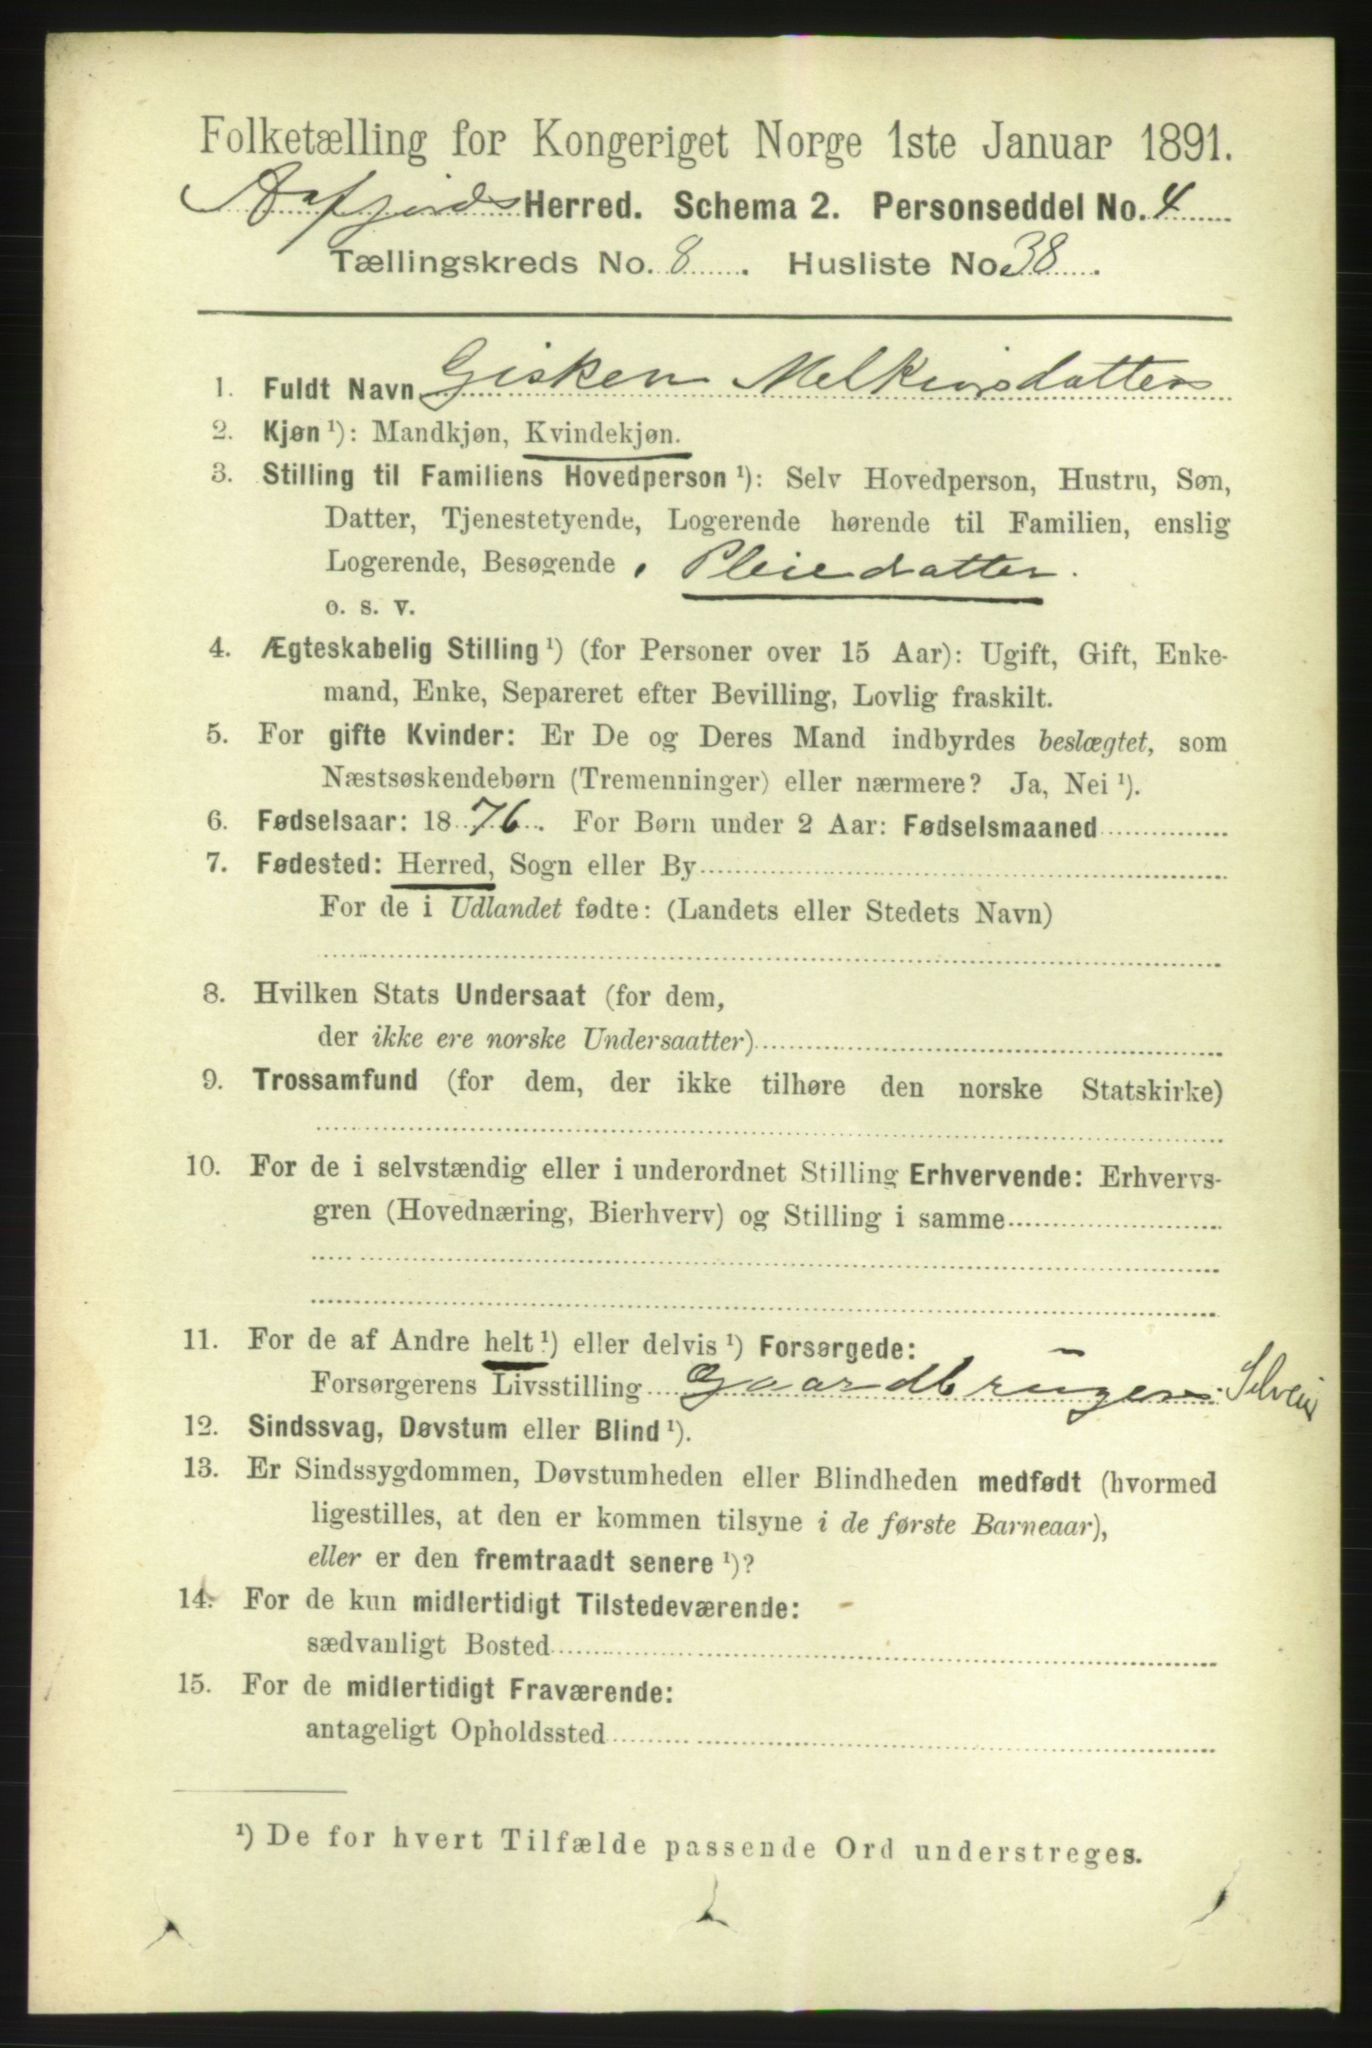 Folketælling for Kongeriget Norge 1ste Januar 1891.
Aafjords Herred. Schema 2. Personseddel No. 4
Tællingskreds No. 8. Husliste No 38.
1. Fuldt Navn Gisken Melkiorsdatter
2. Kjøn ¹): Mandkjøn, Kvindekjøn.
3. Stilling til Familiens Hovedperson ¹): Selv Hovedperson, Hustru, Søn,
Datter, Tjenestetyende, Logerende hørende til Familien, enslig
Logerende, Besøgende, Pleiedatter.
o. s. v.
4. Ægteskabelig Stilling ¹) (for Personer over 15 Aar): Ugift, Gift, Enke-
mand, Enke, Separeret efter Bevilling, Lovlig fraskilt.
5. For gifte Kvinder: Er De og Deres Mand indbyrdes beslægtet, som
Næstsøskendebørn (Tremenninger) eller nærmere? Ja, Nei ¹).
6. Fødselsaar: 1876. For Børn under 2 Aar: Fødselsmaaned
7. Fødested: Herred, Sogn eller By
For de i Udlandet fødte: (Landets eller Stedets Navn)
8. Hvilken Stats Undersaat (for dem,
der ikke ere norske Undersaatter)
9. Trossamfund (for dem, der ikke tilhøre den norske Statskirke)
10. For de i selvstændig eller i underordnet Stilling Erhvervende: Erhvervs-
gren (Hovednæring, Bierhverv) og Stilling i samme
11. For de af Andre helt ¹) eller delvis ¹) Forsørgede:
Forsørgerens Livsstilling Gaardbruger Selveier
12. Sindssvag, Døvstum eller Blind ¹).
13. Er Sindssygdommen, Døvstumheden eller Blindheden medfødt (hvormed
ligestilles, at den er kommen tilsyne i de første Barneaar),
eller er den fremtraadt senere ¹)?
14. For de kun midlertidigt Tilstedeværende:
sædvanligt Bosted
15. For de midlertidigt Fraværende:
antageligt Opholdssted
¹) De for hvert Tilfælde passende Ord understreges.